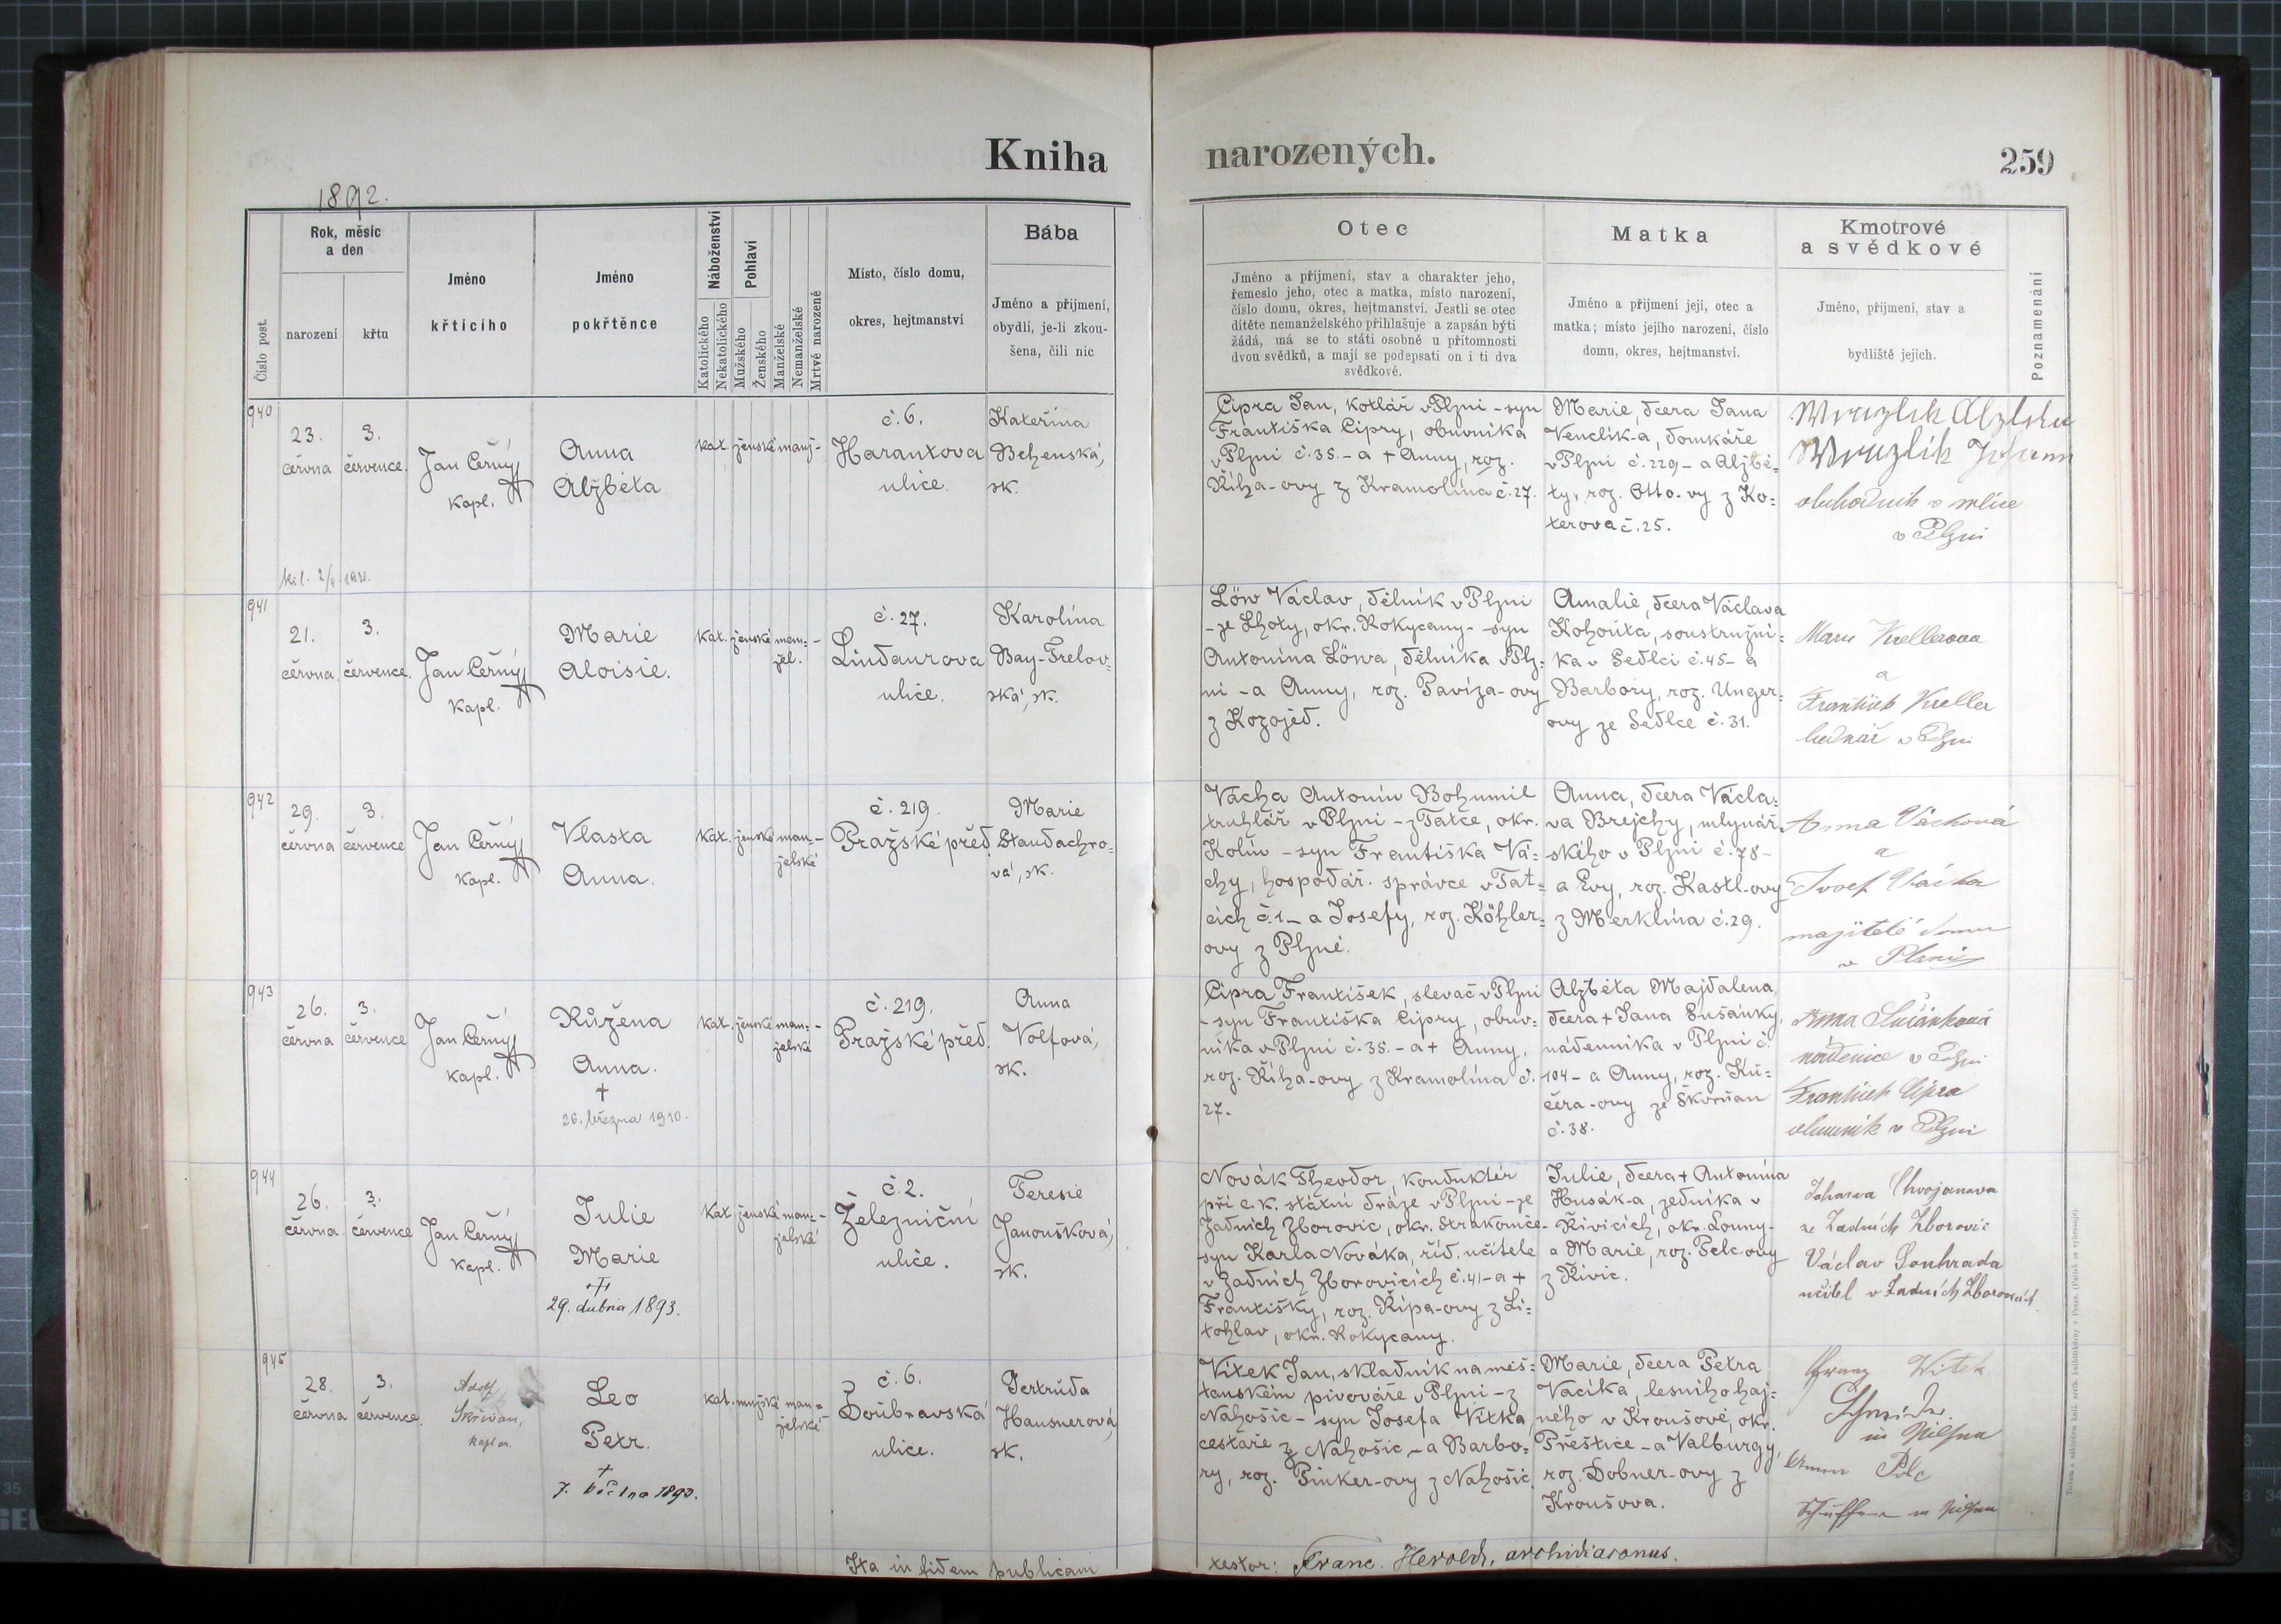 Kniha narozených.
259
1892.
Číslo post.
Rok, měsíc
a den
narození
křtu
Jméno
křticího
Jméno
pokřtěnce
Náboženství
Katolického
Nekatolického
Pohlaví
Mužského
Ženského
Manželské
Nemanželské
Mrtvě narozené
Místo, číslo domu,
okres, hejtmanství
Bába
Jméno a příjmení,
obydlí, je-li zkou-
šena, čili nic
Otec
Jméno a příjmení, stav a charakter jeho,
řemeslo jeho, otec a matka, místo narození,
číslo domu, okres, hejtmanství. Jestli se otec
dítěte nemanželského přihlašuje a zapsán býti
žádá, má se to státi osobně u přítomnosti
dvou svědků, a mají se podepsati on i ti dva
svědkové.
Matka
Jméno a příjmení její, otec a
matka; místo jejího narození, číslo
domu, okres, hejtmanství.
Kmotrové
a svědkové
Jméno, příjmení, stav a
bydliště jejich.
Poznamenání
940
23.
června
3.
července.
Jan Černý
kapl.
Anna
Alžběta
kat. ženské manž-
č. 6.
Harantova
ulice.
Kateřina
Behenská,
zk.
Cipra Jan, kotlář v Plzni - syn
Františka Cipry, obuvníka
v Plzni č. 35. - a + Anny, roz.
Říha-ovy z Kramolína č. 27.
Marie, dcera Jana
Venclík-a, domkáře
v Plzni č. 229 - a Alžbě=
ty, roz. Otto-vy z Ko=
terova č. 25.
obchodník v
v Plzni
941
21.
června
3.
července.
Jan Černý
kapl.
Marie
Aloisie.
kat. ženské man= -
žel.
č. 27.
Lindaurova
ulice.
Karolína
Bay-Trelov=
ská, zk.
Löw Václav, dělník v Plzni
- ze Lhoty, okr. Rokycany - syn
Antonína Löwa, dělníka v Plz=
ni - a Anny, roz. Pavíza-ovy
z Kozojed.
Amalie, dcera Václava
Kohouta, soustružní=
ka v Sedlci č. 45 - a
Barbory, roz. Unger=
ovy ze Sedlce č. 31.
Marie Krellerova
a
František Kreller
bednář v Plzni
942
29.
června
3.
července
Jan Černý
kapl.
Vlasta
Anna.
kat. ženské man= -
želské
č. 219.
Pražské před.
Marie
Staudachro=
vá, zk.
Vácha Antonín Bohumil
truhlář v Plzni - z Tatce, okr.
Kolín - syn Františka Vá=
chy, hospodář. správce v Tat=
cích č. 1 - a Josefy, roz. Köhler=
ovy z Plzně.
Anna, dcera Václa=
va Brejchy, mlynář.
ského v Plzni č. 78 -
a Evy, roz. Kastl-ovy
z Merklína č. 29.
Anna Váchová
a
Josef Vácha
majitelé domu
v Plzni
943
26.
června
3.
července
Jan Černý
kapl.
Růžena
Anna.
+
26. března 1910.
kat. ženské man= -
želské
č. 219.
Pražské před.
Anna
Volfová,
zk.
Cipra František, slevač v Plzni
- syn Františka Cipry, obuv=
níka v Plzni č. 35. - a + Anny,
roz. Říha-ovy z Kramolína č.
27.
Alžběta Majdalena,
dcera + Jana Sušánky,
nádenníka v Plzni č.
104 - a Anny, roz. Ku=
čera-ovy ze Skvrňan
č. 38.
v Plzni
František Cipra
obuvník v Plzni
944
26.
června
3.
července
Jan Černý
kapl.
Julie
Marie
+
29. dubna 1893.
kat. ženské man= -
želské
č. 2.
Železniční
ulice.
Teresie
Janoušková,
zk.
Novák Theodor, konduktér
při c. k. státní dráze v Plzni - ze
Zadních Zborovic, okr. Strakonice -
syn Karla Nováka, říd. učitele
v Zadních Zborovicích č. 41 - a +
Františky, roz. Řípa-ovy z Li=
tohlav, okr. Rokycany.
Julie, dcera + Antonína
Husák-a, zedníka v
Řivicích, okr. Louny -
a Marie, roz. Pelc-ovy
z Řivic.
Johanna
ze Zadních Zborovic
Václav Souhrada
učitel v Zadních Zborovicích.
945
28.
června
3.
července.
Adolf
Skřivan,
kaplan.
Leo
Petr.
+
kat. mužské man= -
želské
č. 6.
Doubravská
ulice.
Gertruda
Hausnerová,
zk.
Vítek Jan, skladník na měš=
ťanském pivováře v Plzni - z
Nahošic - syn Josefa Vítka
cestáře z Nahošic - a Barbo=
ry, roz. Pinker-ovy z Nahošic.
Marie, dcera Petra
Vacíka, lesního haj=
ného v Kroušově, okr.
Přeštice - a Valburgy,
roz. Dobner-ovy z
Kroušova.
Franz Witek
in Pilsen
in Pilsen
Ita in fidem publicam testor: Franc. Herold, archidiaconus.